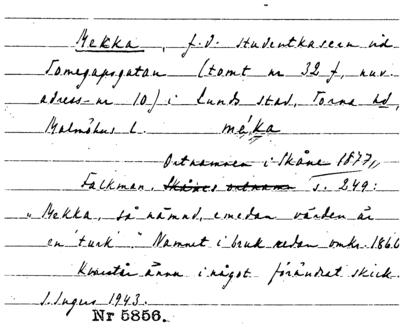 Mekka, f.d. studentkasern vid
Tomegapsgatan (tomt nr 32 f, nuv.
adress-nr 10) i Lunds stad, Torna hd,
Malmöhus l. méka
Ortnamnen i Skåne 1877,
Falkman, Skånes ortnamn s. 249:
"Mekka, så nämnd, emedan värden är
en 'turk'." Namnet i bruk redan omkr. 1860
Kvarstår ännu i något förändrat skick.
S. Ingers 1943.
Nr 5856.